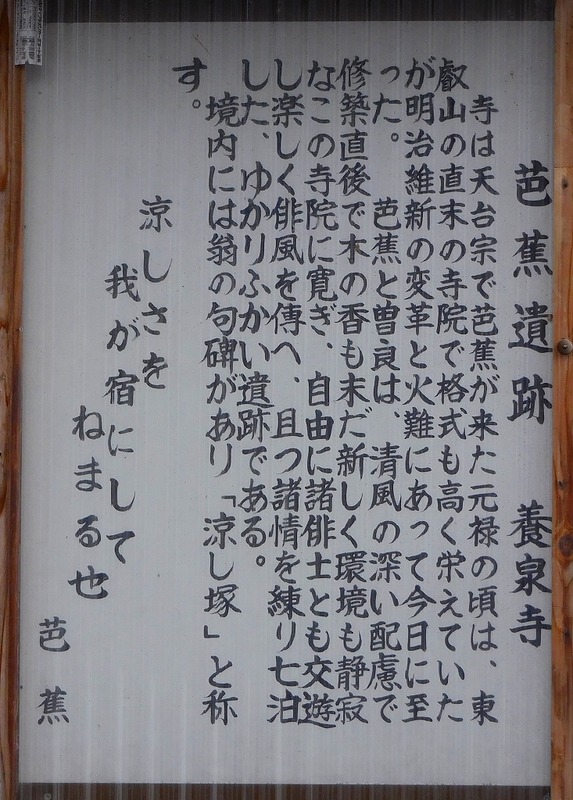 芭蕉遺跡　養泉寺
寺は天台宗で芭蕉が来た元禄の頃は、東
叡山の直末の寺院で格式も高く栄えていた
が明治維新の変革と火難にあって今日に至
った。　芭蕉と曽良は、清風の深い配慮で
修築直後で木の香も末だ新しく環境も静寂
なこの寺院に寛ぎ、自由に諸俳士とも交遊
し楽しく俳風を傳へ、且つ諸情を練り七泊
した、ゆかりふかい遺跡である。
境内には翁の句碑があり「涼し塚」と称
す。
涼しさを
我が宿にして
ねまる也
芭蕉